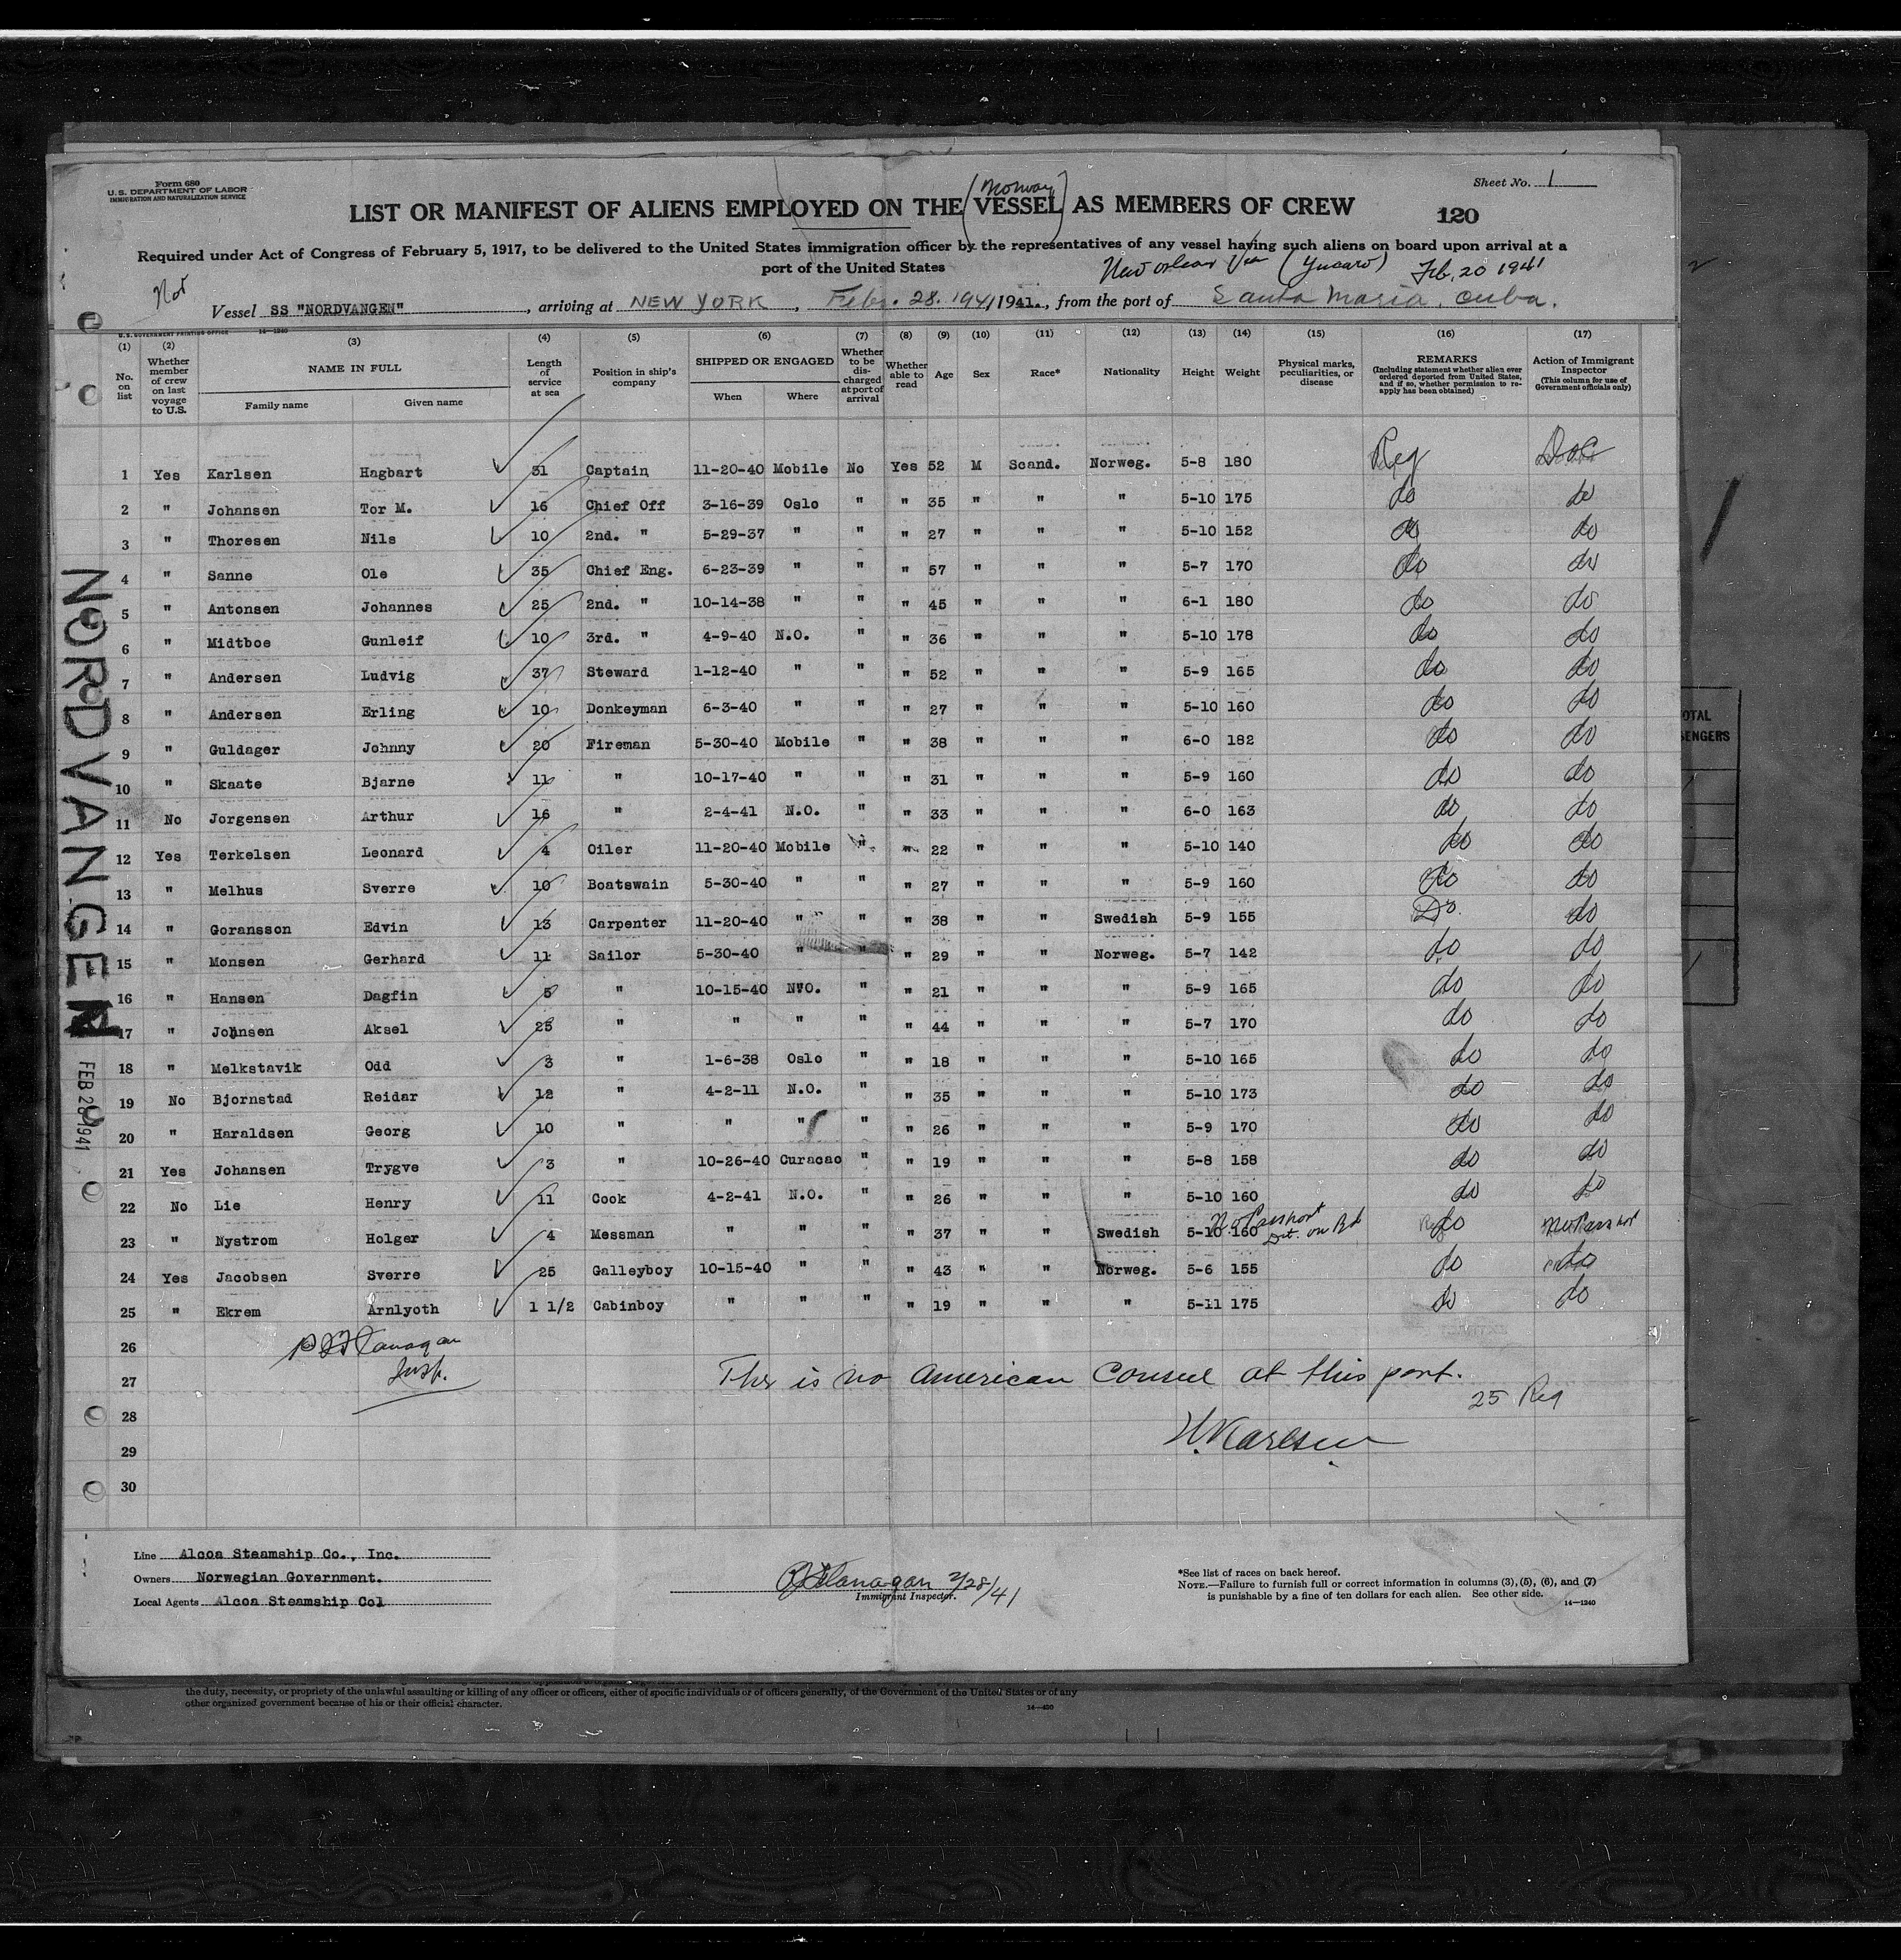 Form 680
U. S. DEPARTMENT OF LABOR
IMMIGRATION AND NATURALIZATION SERVICE
Sheet No. 1
(Norway)
LIST OR MANIFEST OF ALIENS EMPLOYED ON THE VESSEL AS MEMBERS OF CREW
120
Required under Act of Congress of February 5, 1917, to be delivered to the United States immigration officer by the representatives of any vessel having such aliens on board upon arrival at a
port of the United States
New Orleans Via (Jucaro) Feb. 20 1941
Nor
Vessel SS "NORDVANGEN", arriving at NEW YORK, Febr. 28. 1941 1941., from the port of Santa Maria, Cuba.
U. S. GOVERNMENT PRINTING OFFICE 14—1240
(1) (2) (3) (4) (5) (6) (7) (8) (9) (10) (11) (12) (13) (14) (15) (16) (17)
No. on list
Whether member of crew on last voyage to U.S.
NAME IN FULL
Family name Given name
Length of service at sea
Position in ship's company
SHIPPED OR ENGAGED
When Where
Whether to be discharged at port of arrival
Whether able to read
Age
Sex
Race*
Nationality
Height
Weight
Physical marks, peculiarities, or disease
REMARKS
(Including statement whether alien ever ordered deported from United States, and if so, whether permission to reapply has been obtained)
Action of Immigrant Inspector
(This column for use of Government officials only)
1 Yes Karlsen Hagbart 31 Captain 11-20-40 Mobile No Yes 52 M Scand. Norweg. 5-8 180 Reg
2 " Johansen Tor M. 16 Chief Off 3-16-39 Oslo " " 35 " " " 5-10 175 do do
3 " Thoresen Nils 10 2nd. " 5-29-37 " " " 27 " " " 5-10 152 do do
4 " Sanne Ole 35 Chief Eng. 6-23-39 " " " 57 " " " 5-7 170 do do
5 " Antonsen Johannes 25 2nd. " 10-14-38 " " " 45 " " " 6-1 180 do do
6 " Midtboe Gunleif 10 3rd. " 4-9-40 N.O. " " 36 " " " 5-10 178 do do
7 " Andersen Ludvig 37 Steward 1-12-40 " " " 52 " " " 5-9 165 do do
8 " Andersen Erling 10 Donkeyman 6-3-40 " " " 27 " " " 5-10 160 do do
9 " Guldager Johnny 20 Fireman 5-30-40 Mobile " " 38 " " " 6-0 182 do do
10 " Skaate Bjarne 11 " 10-17-40 " " " 31 " " " 5-9 160 do do
11 No Jorgensen Arthur 16 " 2-4-41 N.O. " " 33 " " " 6-0 163 do do
12 Yes Terkelsen Leonard 4 Oiler 11-20-40 Mobile " " 22 " " " 5-10 140 do do
13 " Melhus Sverre 10 Boatswain 5-30-40 " " " 27 " " " 5-9 160 do do
14 " Goransson Edvin 13 Carpenter 11-20-40 " " " 38 " " Swedish 5-9 155 Do. do
15 " Monsen Gerhard 11 Sailor 5-30-40 " " " 29 " " Norweg. 5-7 142 do do
16 " Hansen Dagfin 5 " 10-15-40 N.O. " " 21 " " " 5-9 165 do do
17 " Johnsen Aksel 25 " " " " " 44 " " " 5-7 170 do do
18 " Melkstavik Odd 3 " 1-6-38 Oslo " " 18 " " " 5-10 165 do do
19 No Bjornstad Reidar 12 " 4-2-11 N.O. " " 35 " " " 5-10 173 do do
20 " Haraldsen Georg 10 " " " " " 26 " " " 5-9 170 do do
21 Yes Johansen Trygve 3 " 10-26-40 Curacao " " 19 " " " 5-8 158 do do
22 No Lie Henry 11 Cook 4-2-41 N.O. " " 26 " " " 5-10 160 do do
23 " Nystrom Holger 4 Messman " " " " 37 " " Swedish 5-10 160 No Passport Det. on Bd do No Passport
24 Yes Jacobsen Sverre 25 Galleyboy 10-15-40 " " " 43 " " Norweg. 5-6 155 do do
25 " Ekrem Arnlyoth 1 1/2 Cabinboy " " " " 19 " " " 5-11 175 do do
26
27
28
29
30
Flanagan
Insp.
Ther is no American Consul at this port.
25 Reg
H. Karlsen
NORDVANGEN
FEB 28 1941
Line Alcoa Steamship Co., Inc.
Owners Norwegian Government.
Local Agents Alcoa Steamship Co.
Flanagan 2/28/41
Immigrant Inspector.
*See list of races on back hereof.
NOTE.—Failure to furnish full or correct information in columns (3), (5), (6), and (7)
is punishable by a fine of ten dollars for each alien. See other side.
14—1240
TOTAL
the duty, necessity, or propriety of the unlawful assaulting or killing of any officer or officers, either of specific individuals or of officers generally, of the Government of the United States or of any
other organized government because of his or their official character.